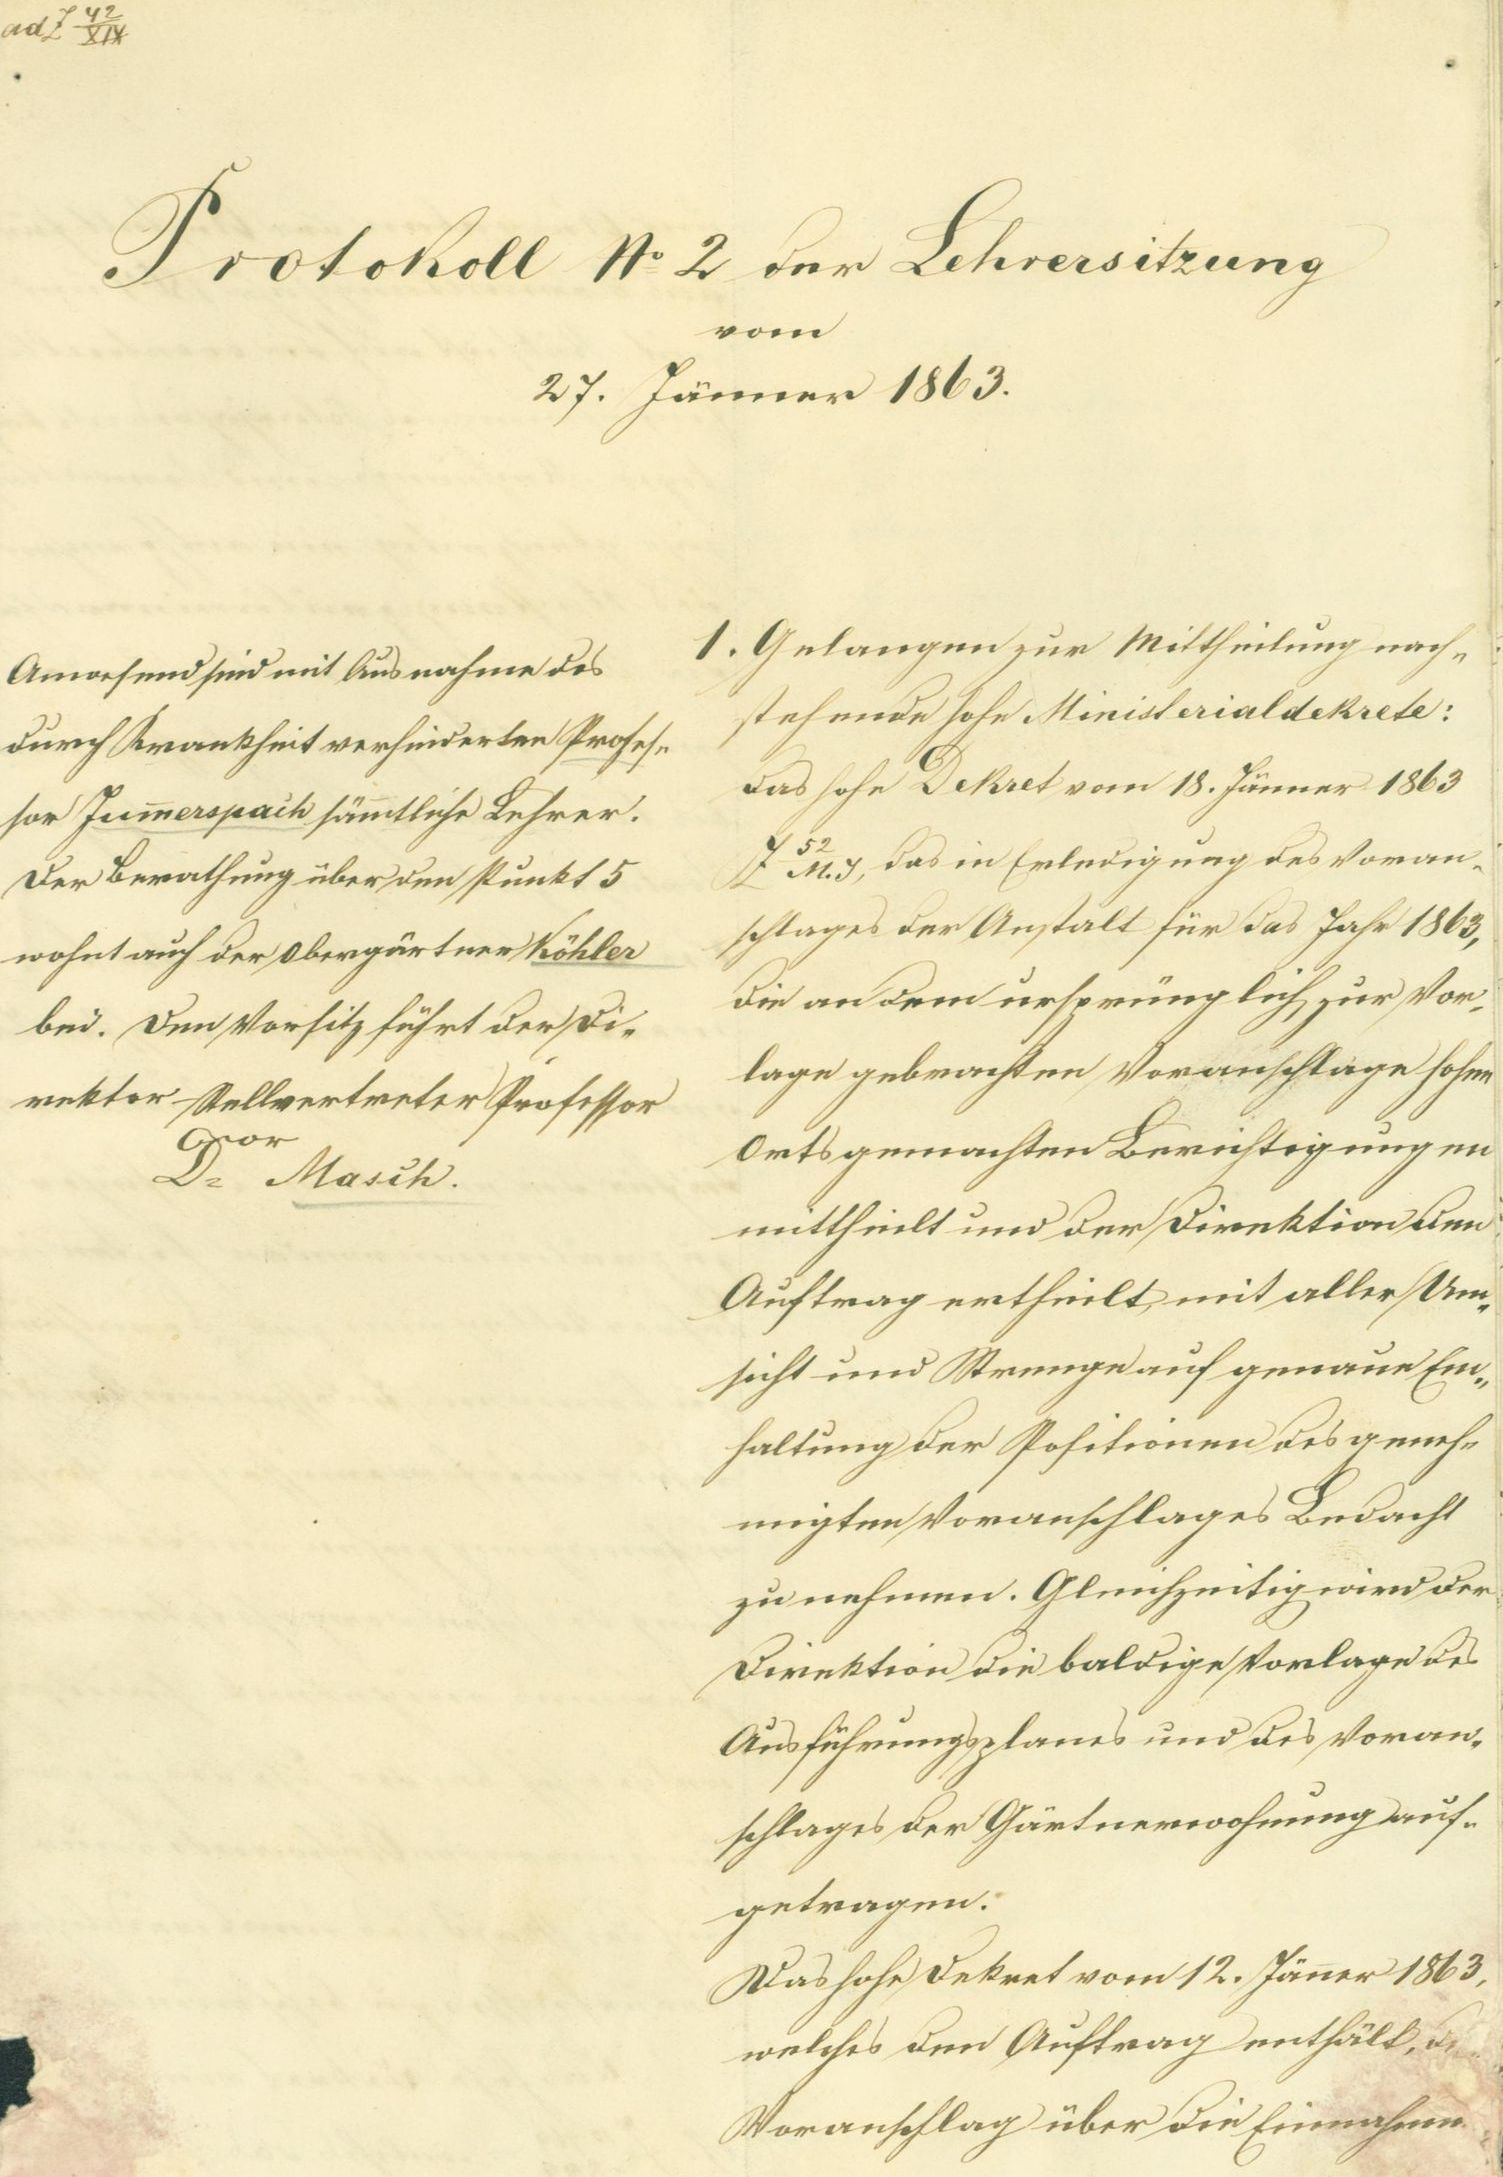 ad Z 42/XIX
Protokoll No 2 der Lehrersitzung
vom
27. Jänner 1863.
Anwesend sind mit Ausnahme des
durch Krankheit verhinderten Profes-
sor Jum̄erspach säm̄tliche Lehrer.
Der Berathung über den Punkt 5
wohnt auch der Obergärtner Köhler
bei. Den Vorsitz führt der Di-
rektor-Stellvertreter Professor
Dr Masch.
1. Gelangen zur Mittheilung nach-
stehende hohe Ministerialdekrete:
das hohe Dekret vom 18. Jänner 1863
Z 52/M.J, das in Erledigung des Voran-
schlages der Anstalt für das Jahr 1863,
die an dem ursprünglich zur Vor-
lage gebrachten Voranschlage hohen
Orts gemachten Berichtigungen
mittheilt und der Direktion den
Auftrag ertheilt, mit aller Um-
sicht und Strenge auf genaue Ein-
haltung der Positionen des geneh-
migten Voranschlages Bedacht
zu nehmen. Gleichzeitig wird der
Direktion die baldige Vorlage des
Ausführungsplanes und des Voran-
schlages der Gärtnerwohnung auf-
getragen.
Das hohe Dekret vom 12. Jän̄er 1863,
welches den Auftrag enthält,
Voranschlag über die Einnahmen